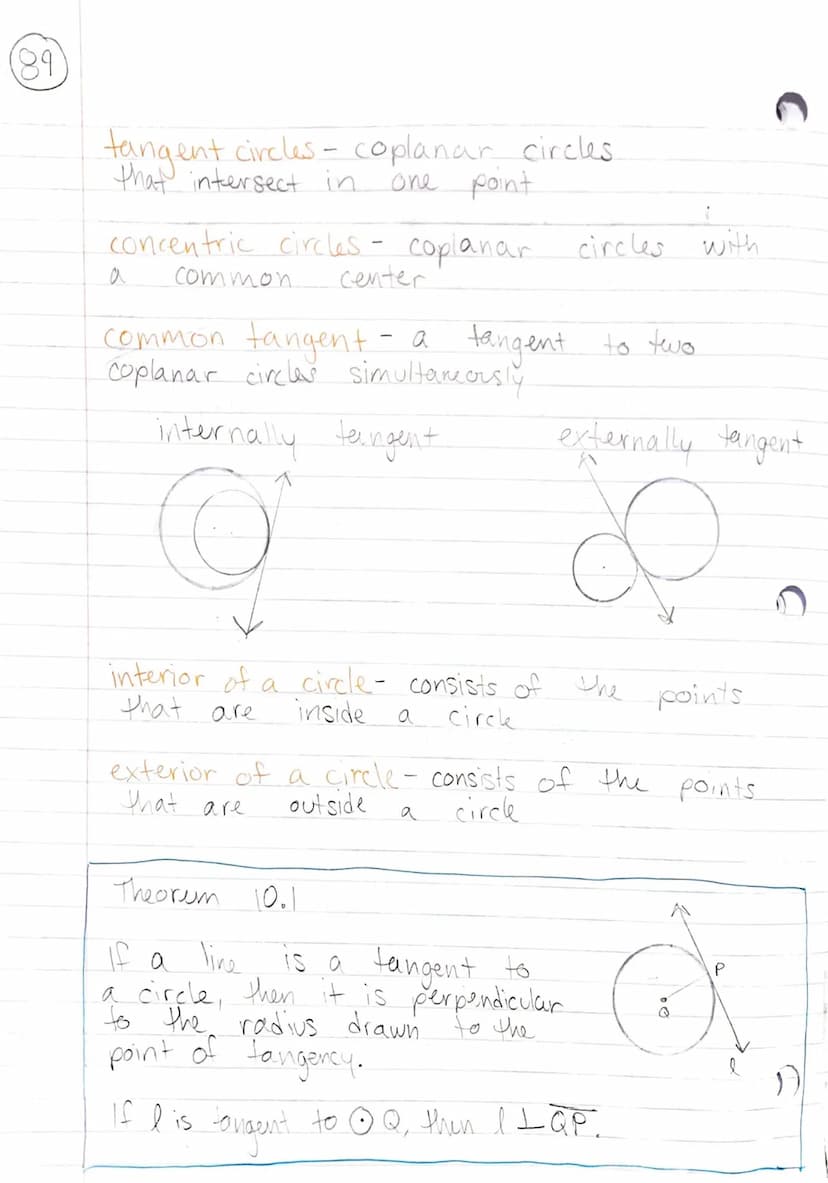 89
tangent circles - coplanar circles
that intersect in one point
concentric circles - coplanar circles with
a common center
common tangent - a tangent to two
coplanar circles simultaneously
internally tangent externally tangent
interior of a circle - consists of the points
that are inside a circle
exterior of a circle - consists of the points
that are outside a circle
Theorem 10.1
If a line is a tangent to
a circle, then it is perpendicular
to the radius drawn to the
point of tangency.
P
Q
l
If l is tangent to ⊙ Q, then l ⊥ Q̅P̅.